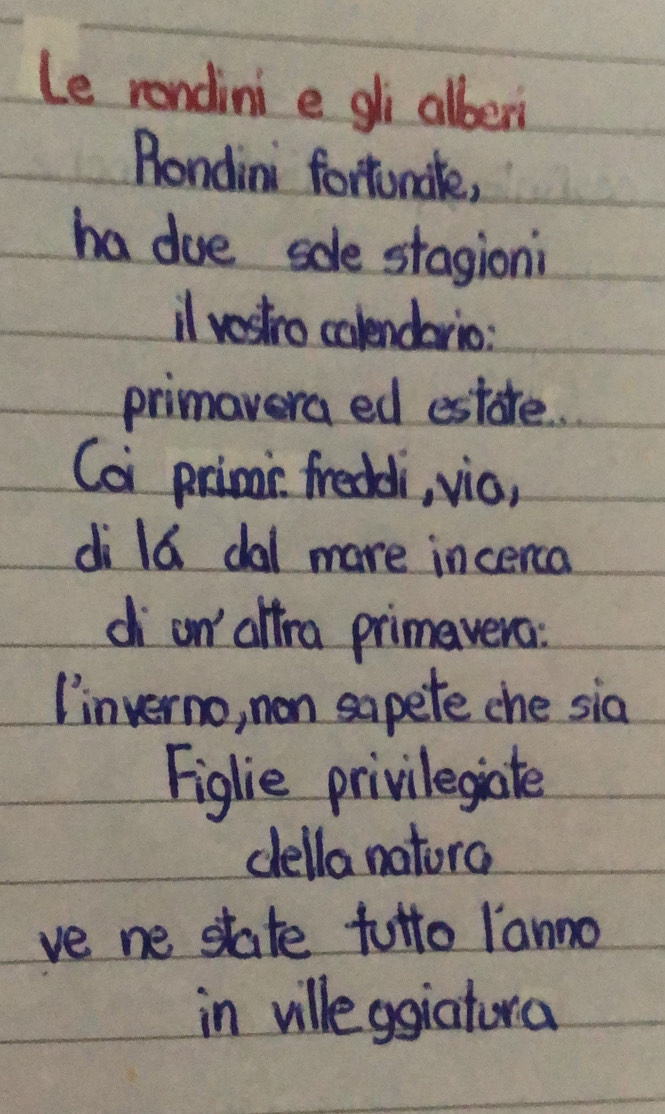 Le rondini e gli alberi
Rondini fortunate,
ha due sole stagioni
il vostro calendario:
primavera ed estate...
Coi primi freddi, via,
di lá dal mare in cerca
di un' altra primavera:
l'inverno, non sapete che sia
Figlie privilegiate
della natura
ve ne state tutto l'anno
in villeggiatura